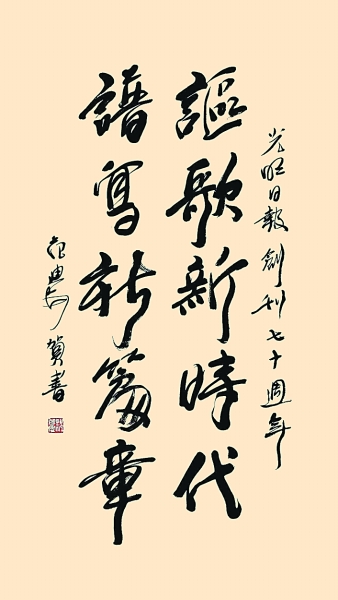 光明日報創刊七十週年
謳歌新時代
譜寫新篇章
范迪安賀書